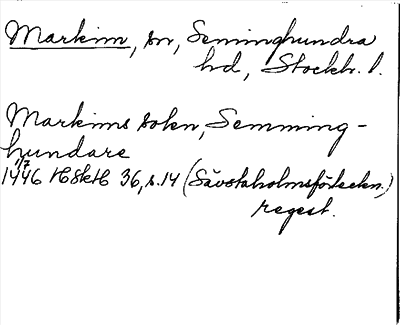 Markim, sn, Seminghundra
hd, Stockh. l.
Markims sokn, Semming-
hundare
1/7
1446 HSkH 36, s. 14 (Sävstaholmsförteckn.)
regest.